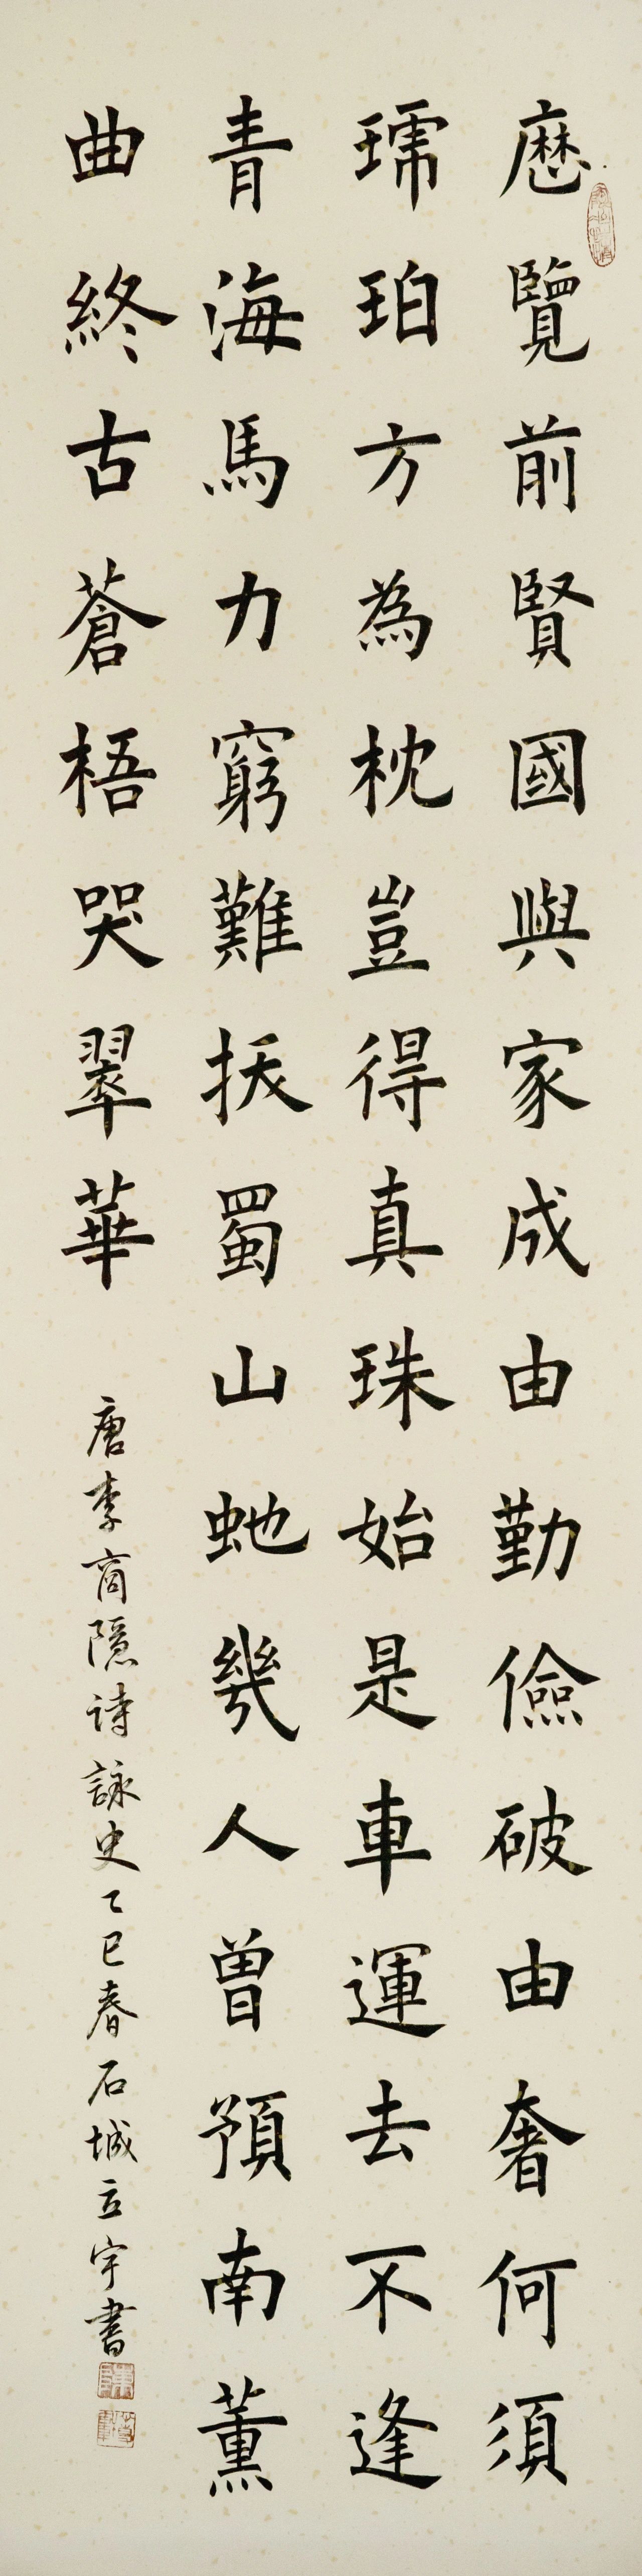 歷覽前賢國與家成由勤儉破由奢何須
琥珀方為枕豈得真珠始是車運去不逢
青海馬力窮難拔蜀山虵幾人曾預南薰
曲終古蒼梧哭翠華
唐李商隱詩詠史乙巳春石城立宇書